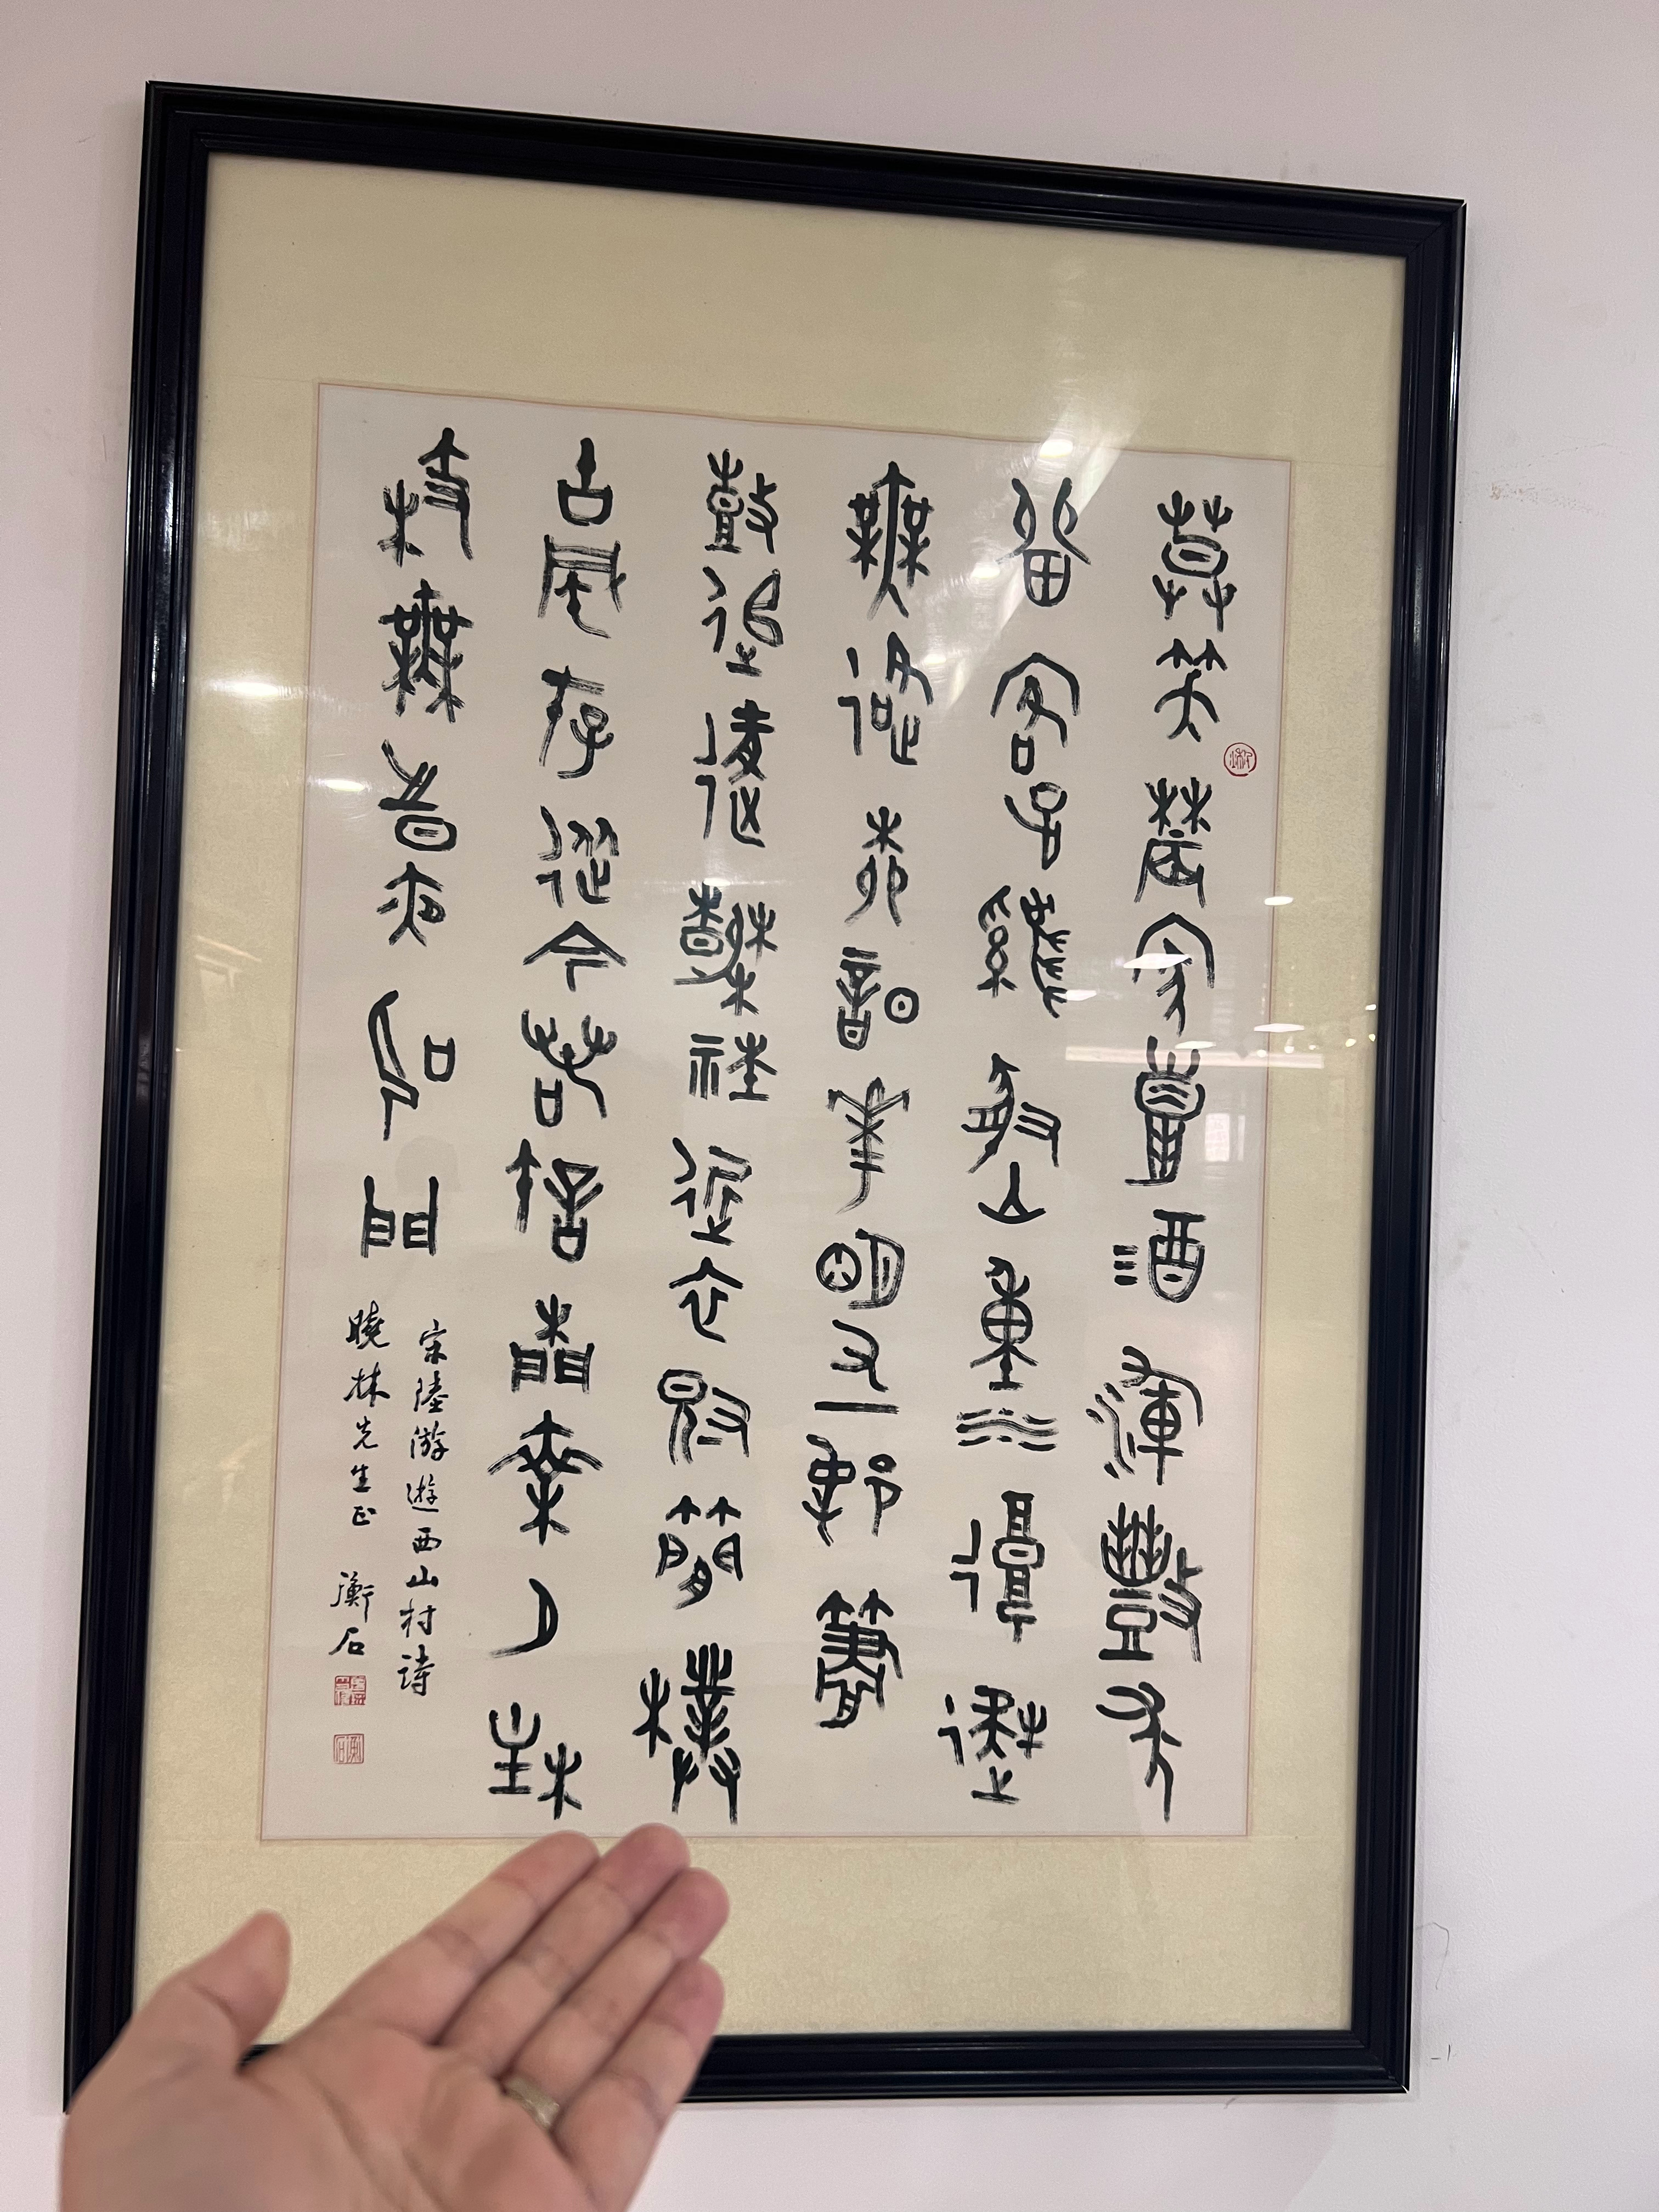 莫笑農家臘酒渾豐年
留客足雞豚山重水複疑
無路柳暗花明又一邨簫
鼓追隨春社近衣冠簡樸
古風存從今若許閒乘月拄
杖無時夜叩門
宋陸游遊西山村詩
曉林先生正 衡石